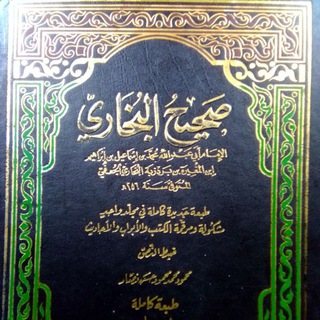 صحيح البخاري
الإمام أبي عبد الله محمد بن إسماعيل بن إبراهيم
ابن المغيرة بن بردزبة البخاري الجعفي
المتوفى سنة ٢٥٦ هـ
طبعة جديدة كاملة في مجلد واحد
مشكولة ومرقمة الكتب والأبواب والأحاديث
ضبط النص
محمود محمد محمود حسن نصار
طبعة كاملة